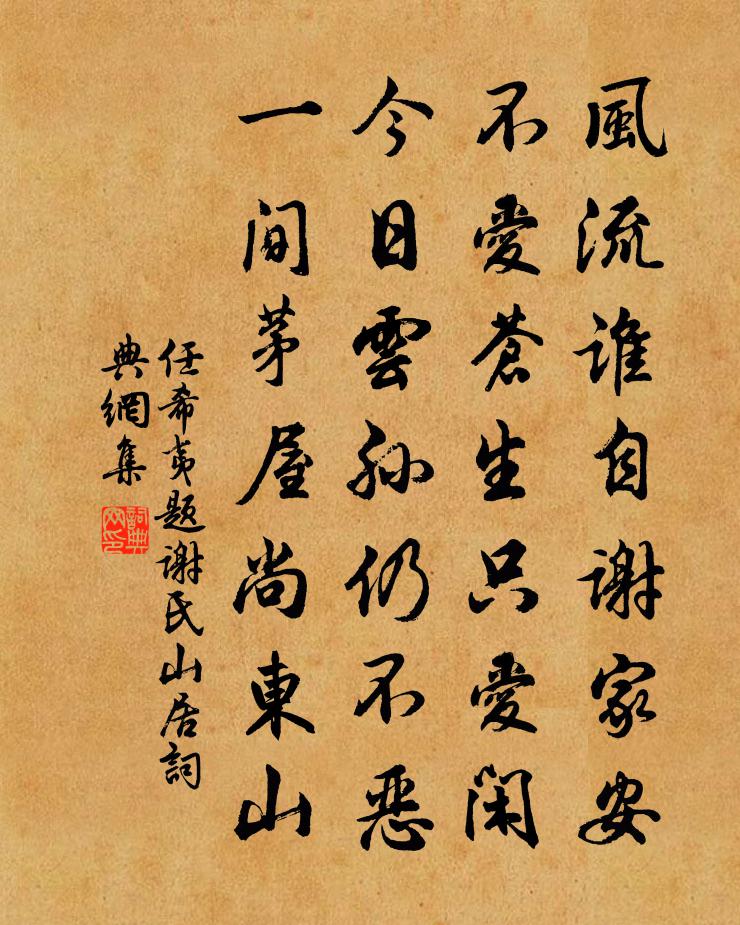 風流誰自謝家安
不愛蒼生只愛閑
今日雲孫仍不惡
一間茅屋尚東山
任希夷題謝氏山居詞
典網集
詞典網印